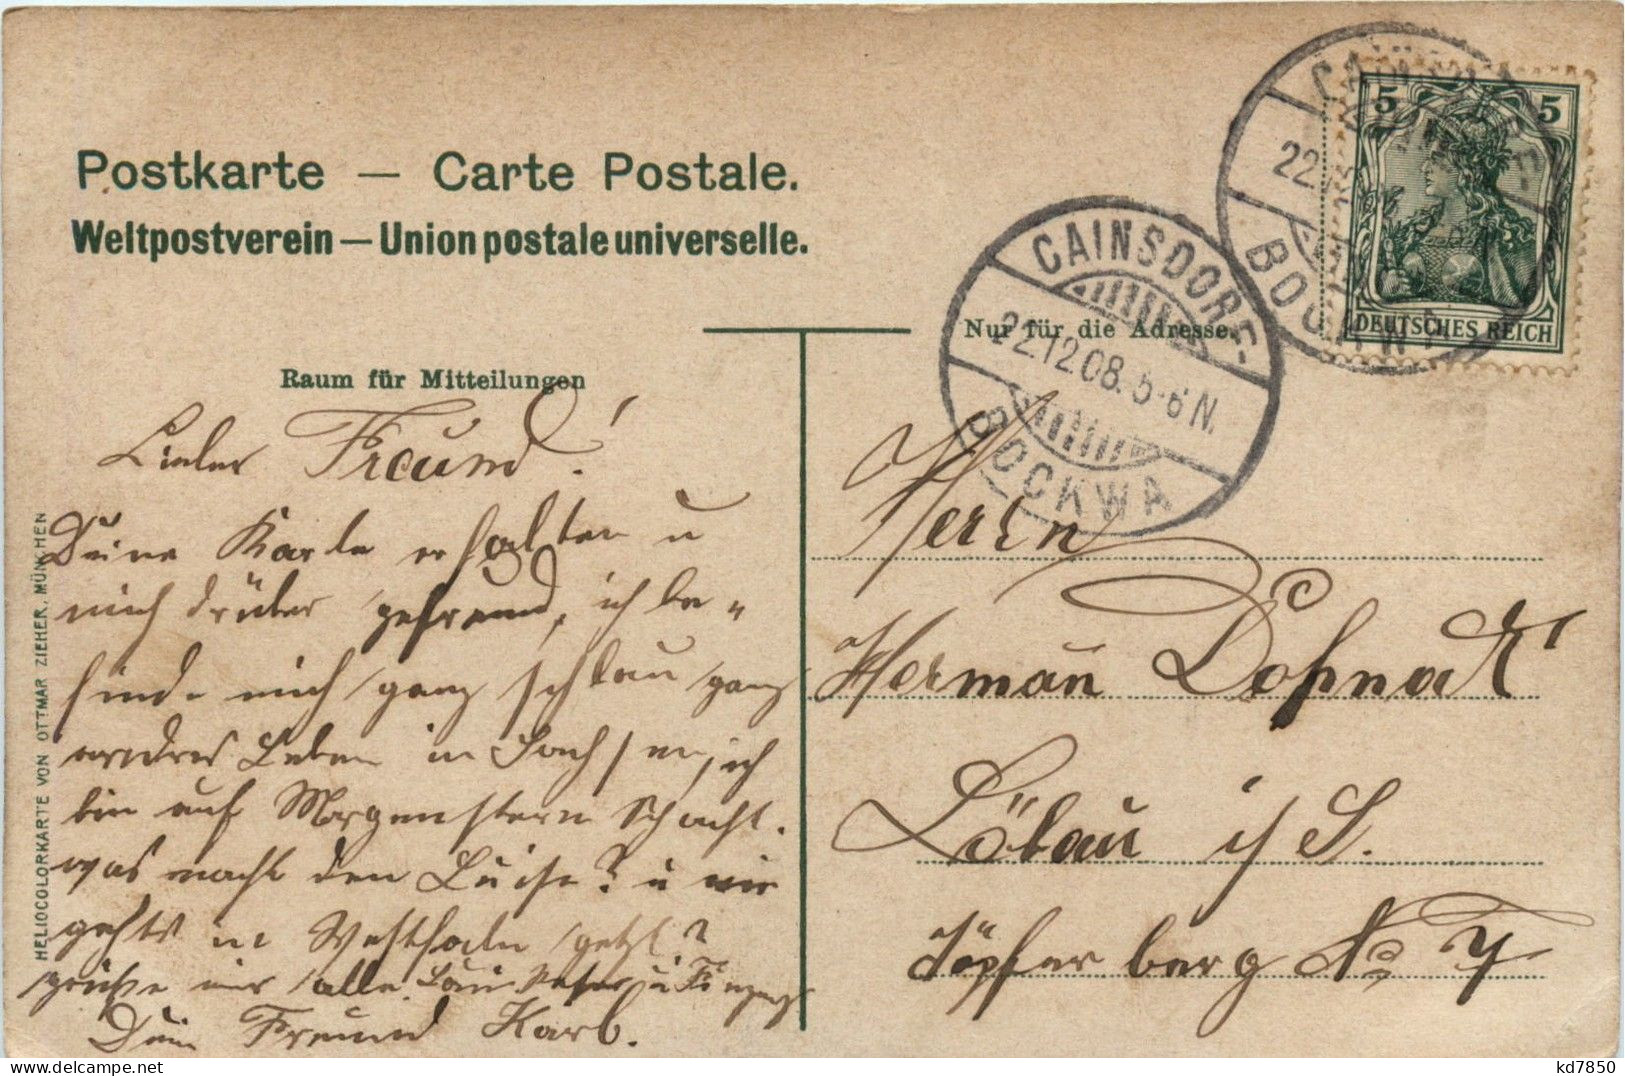 Postkarte — Carte Postale.
Weltpostverein — Union postale universelle.
Nur für die Adresse.
Raum für Mitteilungen
CAINSDORF-
22.12.08. 5-6 N.
BOCKWA
22.
BOCKWA
5 5
DEUTSCHES REICH
HELIOCOLORKARTE VON OTTMAR ZIEHER, MÜNCHEN
Lieber Freund!
Deine Karte erhalten u
mich drüber gefreund, ich be„
finde mich ganz schlau ganz
andres Leben in Sachsen, ich
bin auf Morgenstern Schacht.
was macht den Luise? u wie
gehts in Westfaln jetzt?
grüße mir alle
Dein Freund Karl.
Herrn
Herman Dohnack
Löbau i/S.
Töpferberg No
kd7850